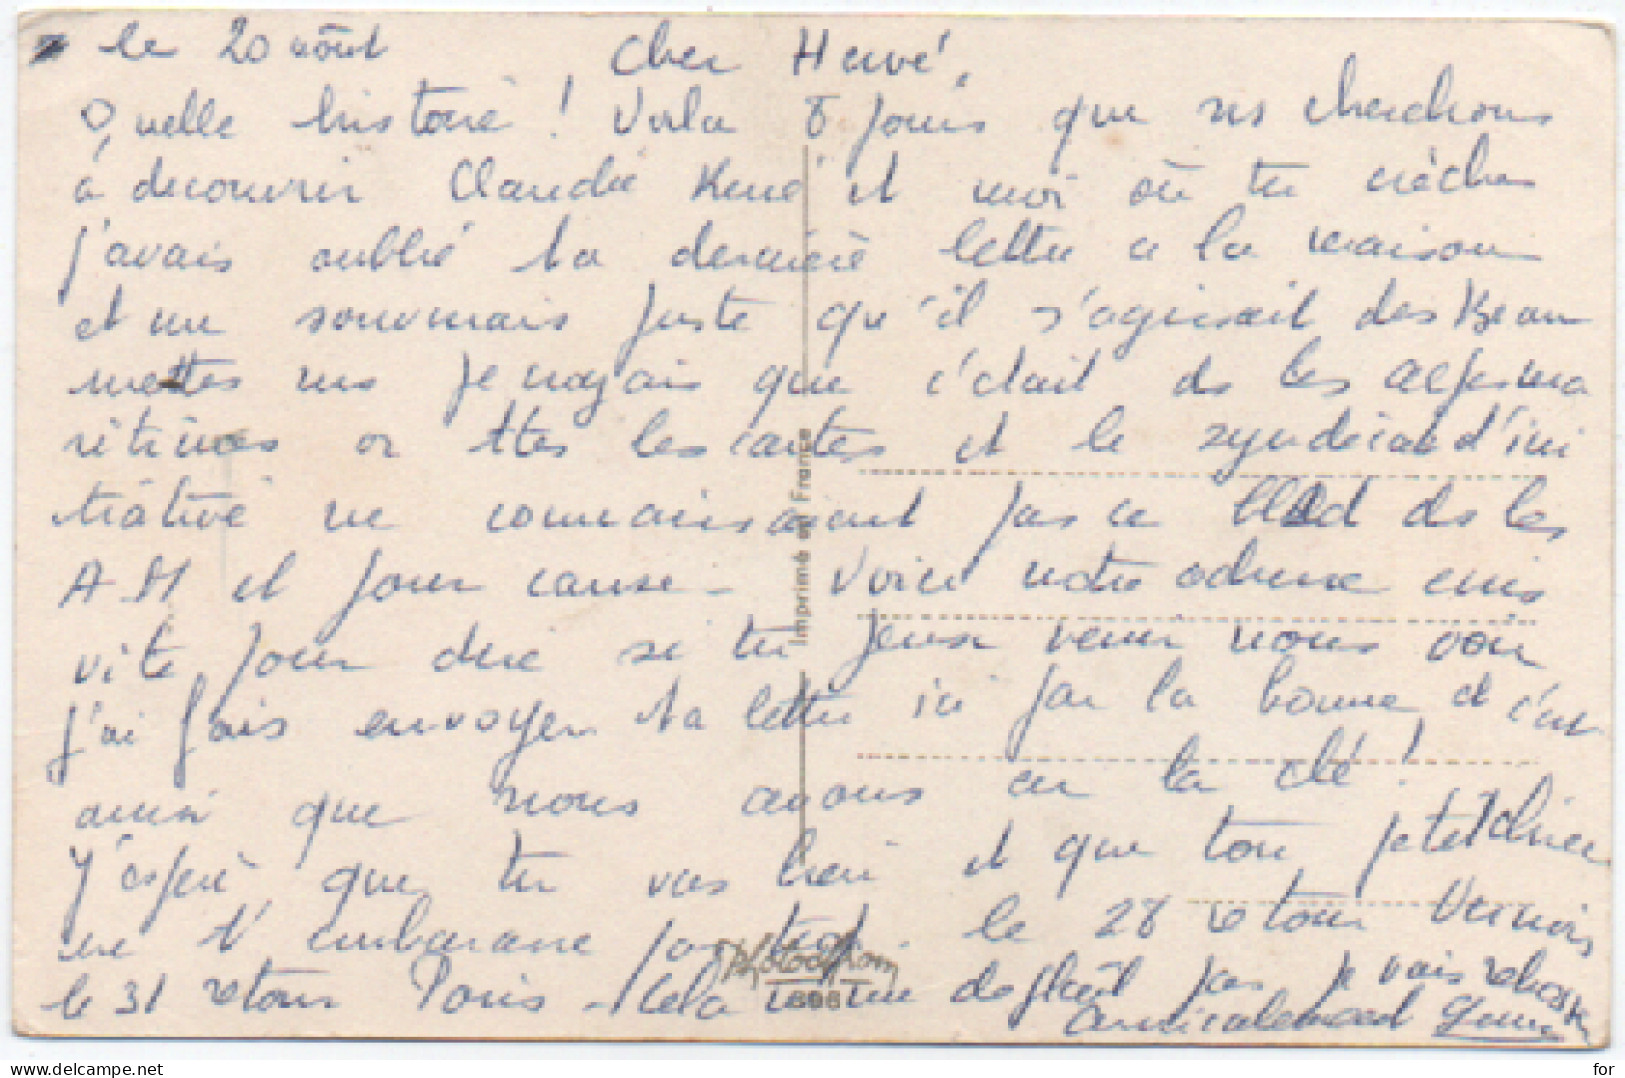 le 20 août Cher Hervé,
Quelle histoire ! Voila 8 jours que ns cherchons
à decouvrir Claudie René et moi où tu crèches
j'avais oublié ta dernière lettre a la maison
et me souvenais juste qu'il s'agissait des Beau
mettes ns je croyais que c'était ds les alpes ma
ritimes or ttes les cartes et le syndicat d'ini
tiative ne connaissaient pas ce bled ds les
A.M et pour cause - Voici notre adresse ecris
vite pour dire si tu peux venir nous voir
j'ai fais envoyer ta lettre ici par la bonne et c'est
ainsi que nous avons eu la clé !
J'espère que tu vas bien et que ton petit chien
ne t'embarasse pas trop. le 28 retour Vernois
le 31 retour Paris - Cela ne me déplait pas je vais
Amicalement
Imprimé en France
Photochrom
808
for
www.delcampe.net